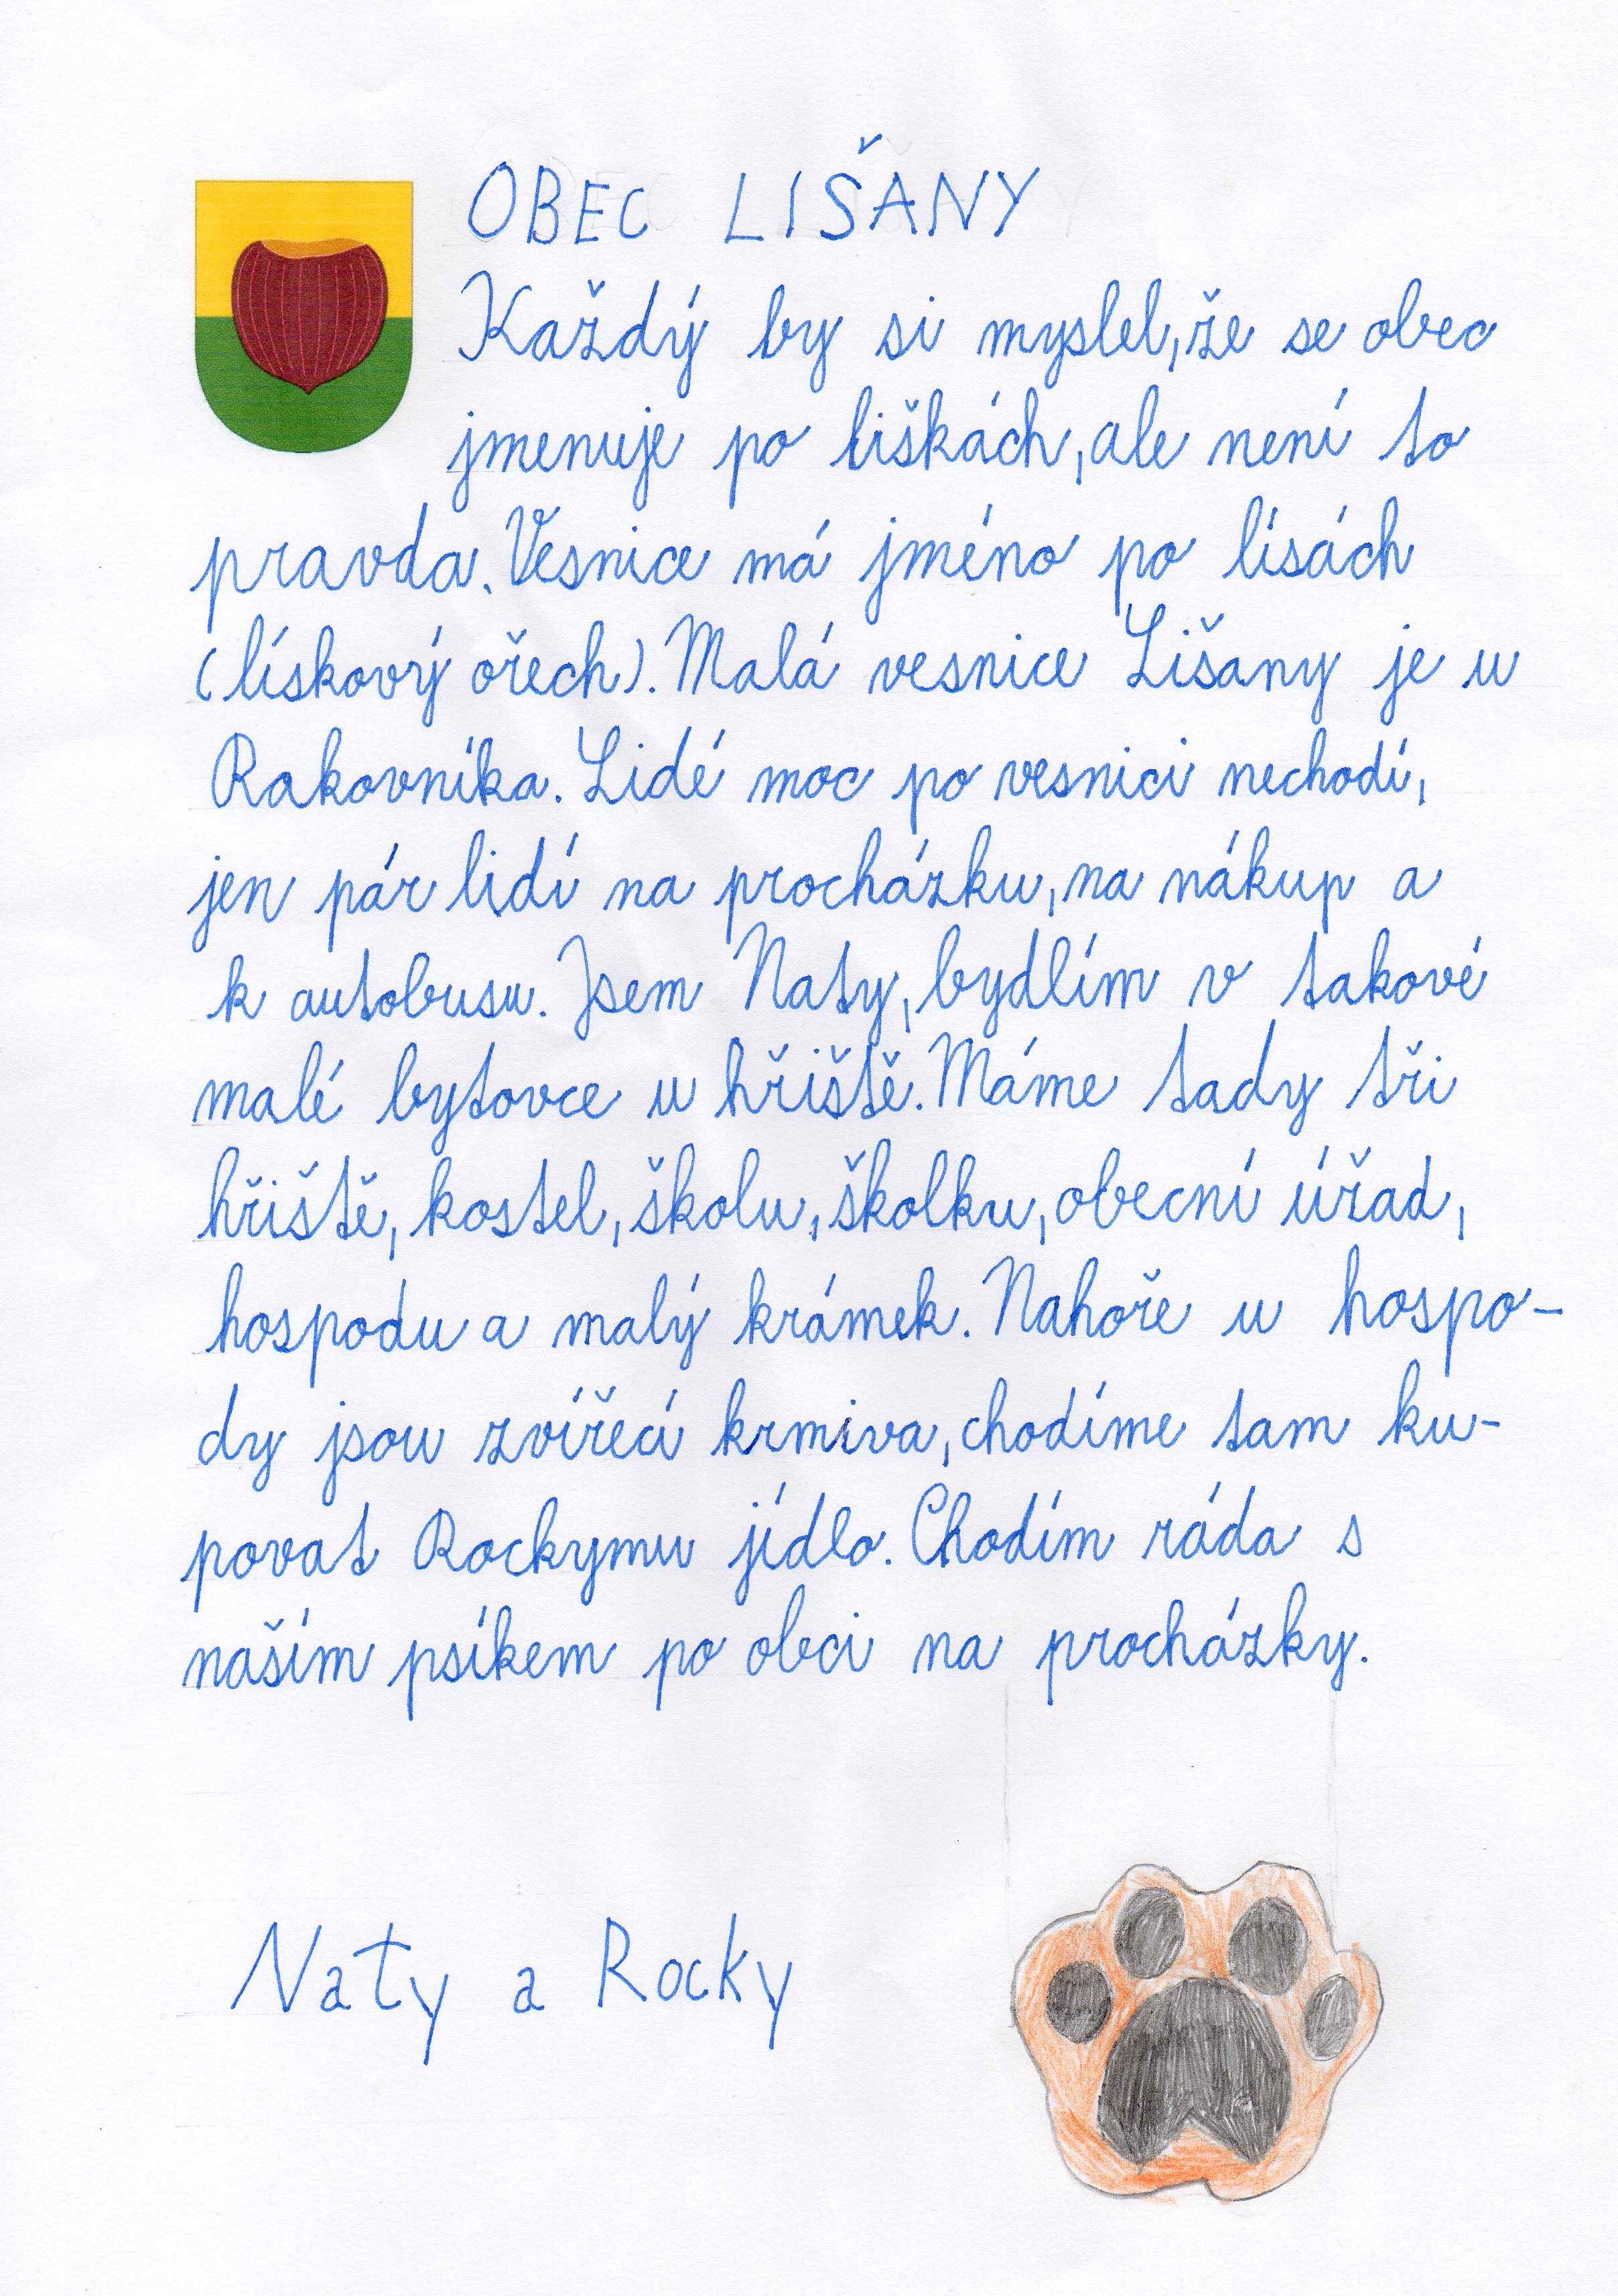 OBEC LIŠANY
Každý by si myslel, že se obec
jmenuje po liškách, ale není to
pravda. Vesnice má jméno po lísách
(lískový ořech). Malá vesnice Lišany je u
Rakovníka. Lidé moc po vesnici nechodí,
jen pár lidí na procházku, na nákup a
k autobusu. Jsem Naty, bydlím v takové
malé bytovce u hřiště. Máme tady tři
hřiště, kostel, školu, školku, obecní úřad,
hospodu a malý krámek. Nahoře u hospo-
dy jsou zvířecí krmiva, chodíme tam ku-
povat Rockymu jídlo. Chodím ráda s
naším psíkem po obci na procházky.
Naty a Rocky